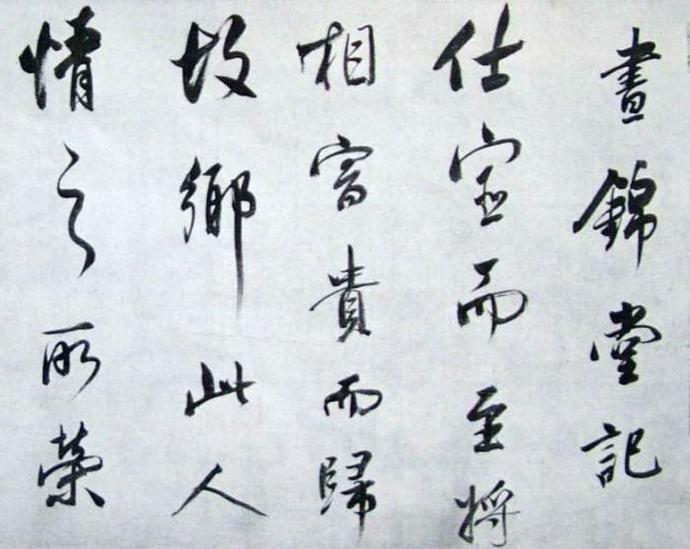 晝錦堂記
仕宦而至將
相富貴而歸
故鄉此人
情之所榮